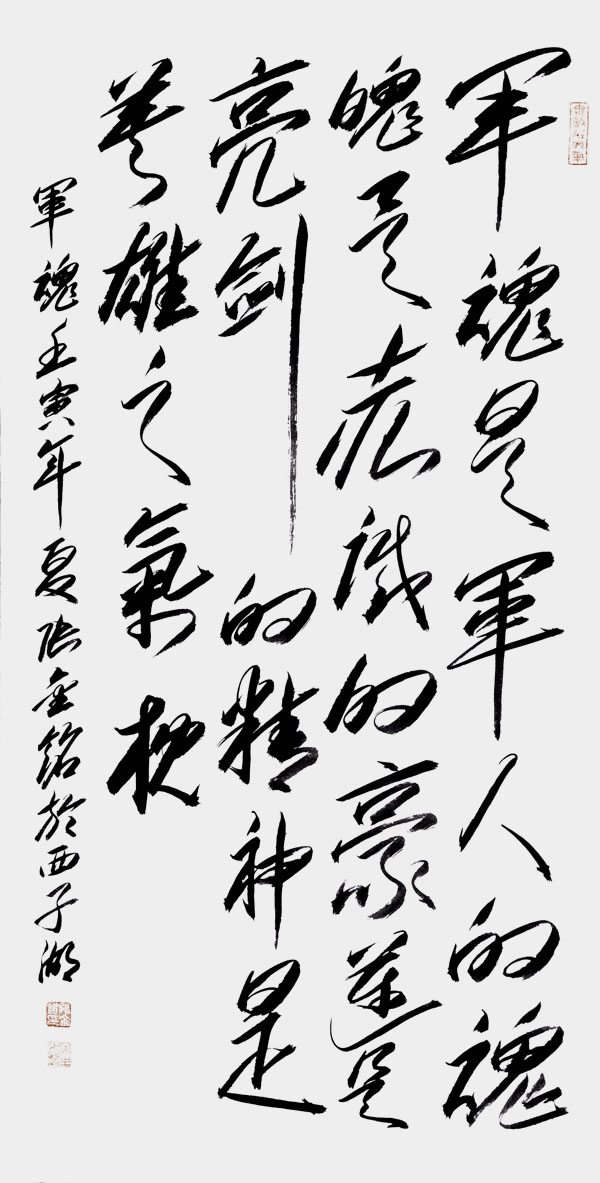 軍魂是軍人的魂
魄是赤誠的豪邁是
亮劍的精神是
英雄之氣概
軍魂壬寅年夏張金銘於西子湖